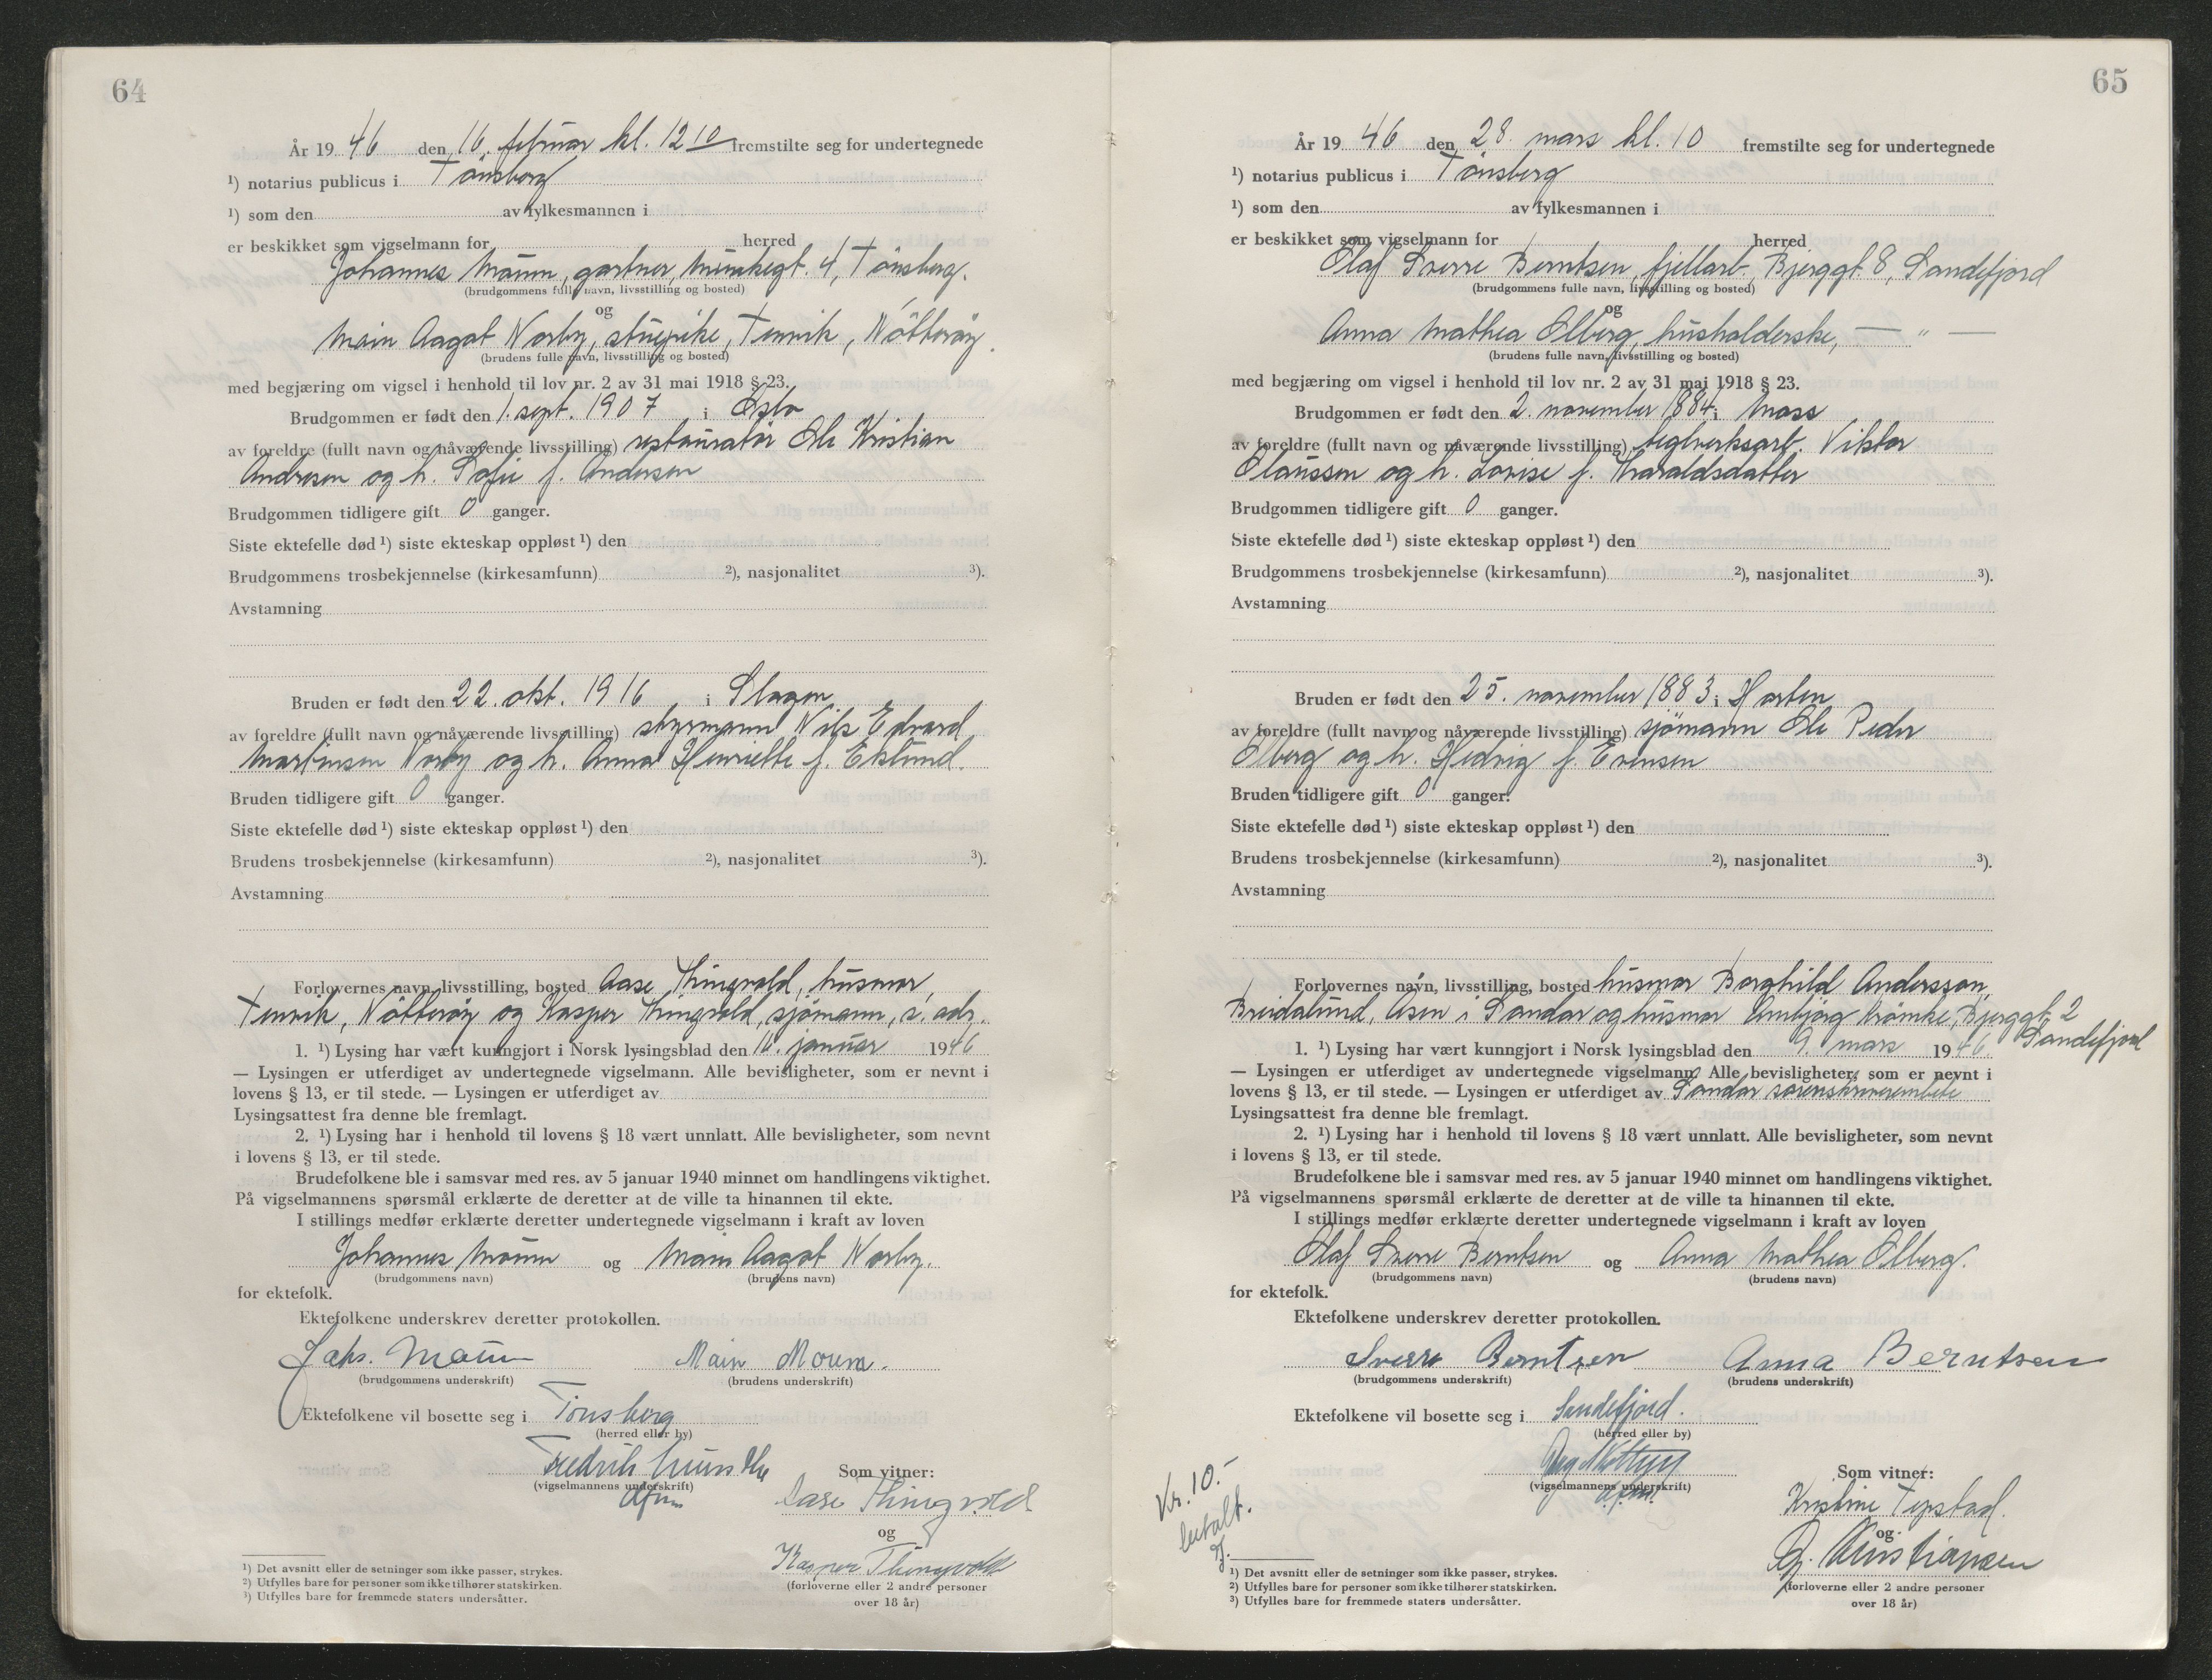 64
År 19 46 den 16. februar kl. 12 10 fremstilte seg for undertegnede
1) notarius publicus i Tönsberg
1) som den av fylkesmannen i
er beskikket som vigselmann for herred
Johannes Mourn, gartner, Munkegt. 4, Tönsberg.
(brudgommens fulle navn, livsstilling og bosted)
og
Main Aagot Norby, stuepike, Tenvik, Nötteröy.
(brudens fulle navn, livsstilling og bosted)
med begjæring om vigsel i henhold til lov nr. 2 av 31 mai 1918 § 23.
Brudgommen er født den 1. sept. 1907 i Oslo
av foreldre (fullt navn og nåværende livsstilling) restauratör Ole Kristian
Andresen og h. Sofie f. Andersen
Brudgommen tidligere gift 0 ganger.
Siste ektefelle død 1) siste ekteskap oppløst 1) den
Brudgommens trosbekjennelse (kirkesamfunn) 2), nasjonalitet 3).
Avstamning
Bruden er født den 22. okt. 1916 i Slagen
av foreldre (fullt navn og nåværende livsstilling) styrmann Nils Edvard
Martinsen Norby og h. Anna Henriette f. Eklund.
Bruden tidligere gift 0 ganger.
Siste ektefelle død 1) siste ekteskap oppløst 1) den
Brudens trosbekjennelse (kirkesamfunn) 2), nasjonalitet 3).
Avstamning
Forlovernes navn, livsstilling, bosted Aase Thingvold, husmor,
Tenvik, Nötteröy og Kasper Thingvold, sjömann, s. adr.
1. 1) Lysing har vært kunngjort i Norsk lysingsblad den 16. januar 1946
— Lysingen er utferdiget av undertegnede vigselmann. Alle bevisligheter, som er nevnt i
lovens § 13, er til stede. — Lysingen er utferdiget av
Lysingsattest fra denne ble fremlagt.
2. 1) Lysing har i henhold til lovens § 18 vært unnlatt. Alle bevisligheter, som nevnt
i lovens § 13, er til stede.
Brudefolkene ble i samsvar med res. av 5 januar 1940 minnet om handlingens viktighet.
På vigselmannens spørsmål erklærte de deretter at de ville ta hinannen til ekte.
I stillings medfør erklærte deretter undertegnede vigselmann i kraft av loven
Johannes Mourn og Main Aagot Norby.
(brudgommens navn) (brudens navn)
for ektefolk.
Ektefolkene underskrev deretter protokollen.
Johs. Mourn Main Mourn.
(brudgommens underskrift) (brudens underskrift)
Ektefolkene vil bosette seg i Tönsberg
(herred eller by)
Fredrik
(vigselmannens underskrift)
Som vitner:
Aase Thingvold
og
Kasper Thingvold
(forloverne eller 2 andre personer
over 18 år)
1) Det avsnitt eller de setninger som ikke passer, strykes.
2) Utfylles bare for personer som ikke tilhører statskirken.
3) Utfylles bare for fremmede staters undersåtter.
65
År 19 46 den 28. mars kl. 10 fremstilte seg for undertegnede
1) notarius publicus i Tönsberg
1) som den av fylkesmannen i
er beskikket som vigselmann for herred
Olaf Sverre Berntsen, fjellarb., Bjerggt. 8, Sandefjord
(brudgommens fulle navn, livsstilling og bosted)
og
Anna Mathea Olberg, husholderske, — " —
(brudens fulle navn, livsstilling og bosted)
med begjæring om vigsel i henhold til lov nr. 2 av 31 mai 1918 § 23.
Brudgommen er født den 2. november 1884 i Moss
av foreldre (fullt navn og nåværende livsstilling) teglverksarb. Viktor
Olaussen og h. Lovise f. Haraldsdatter
Brudgommen tidligere gift 0 ganger.
Siste ektefelle død 1) siste ekteskap oppløst 1) den
Brudgommens trosbekjennelse (kirkesamfunn) 2), nasjonalitet 3).
Avstamning
Bruden er født den 25. november 1883 i Horten
av foreldre (fullt navn og nåværende livsstilling) sjömann Ole Peder
Olberg og h. Hedvig f. Evensen
Bruden tidligere gift 0 ganger.
Siste ektefelle død 1) siste ekteskap oppløst 1) den
Brudens trosbekjennelse (kirkesamfunn) 2), nasjonalitet 3).
Avstamning
Forlovernes navn, livsstilling, bosted husmor Borghild Andersson,
Breidalund, Åsen i Sandar og husmor Arnbjörg Krömke, Bjerggt. 2
Sandefjord
1. 1) Lysing har vært kunngjort i Norsk lysingsblad den 9. mars 1946
— Lysingen er utferdiget av undertegnede vigselmann. Alle bevisligheter, som er nevnt i
lovens § 13, er til stede. — Lysingen er utferdiget av Sandar sorenskriverembete
Lysingsattest fra denne ble fremlagt.
2. 1) Lysing har i henhold til lovens § 18 vært unnlatt. Alle bevisligheter, som nevnt
i lovens § 13, er til stede.
Brudefolkene ble i samsvar med res. av 5 januar 1940 minnet om handlingens viktighet.
På vigselmannens spørsmål erklærte de deretter at de ville ta hinannen til ekte.
I stillings medfør erklærte deretter undertegnede vigselmann i kraft av loven
Olaf Sverre Berntsen og Anna Mathea Olberg.
(brudgommens navn) (brudens navn)
for ektefolk.
Ektefolkene underskrev deretter protokollen.
Sverre Berntsen Anna Berntsen
(brudgommens underskrift) (brudens underskrift)
Ektefolkene vil bosette seg i Sandefjord.
(herred eller by)
(vigselmannens underskrift)
Kr. 10.-
betalt.
Som vitner:
Kristine
og
Kristiansen
(forloverne eller 2 andre personer
over 18 år)
1) Det avsnitt eller de setninger som ikke passer, strykes.
2) Utfylles bare for personer som ikke tilhører statskirken.
3) Utfylles bare for fremmede staters undersåtter.